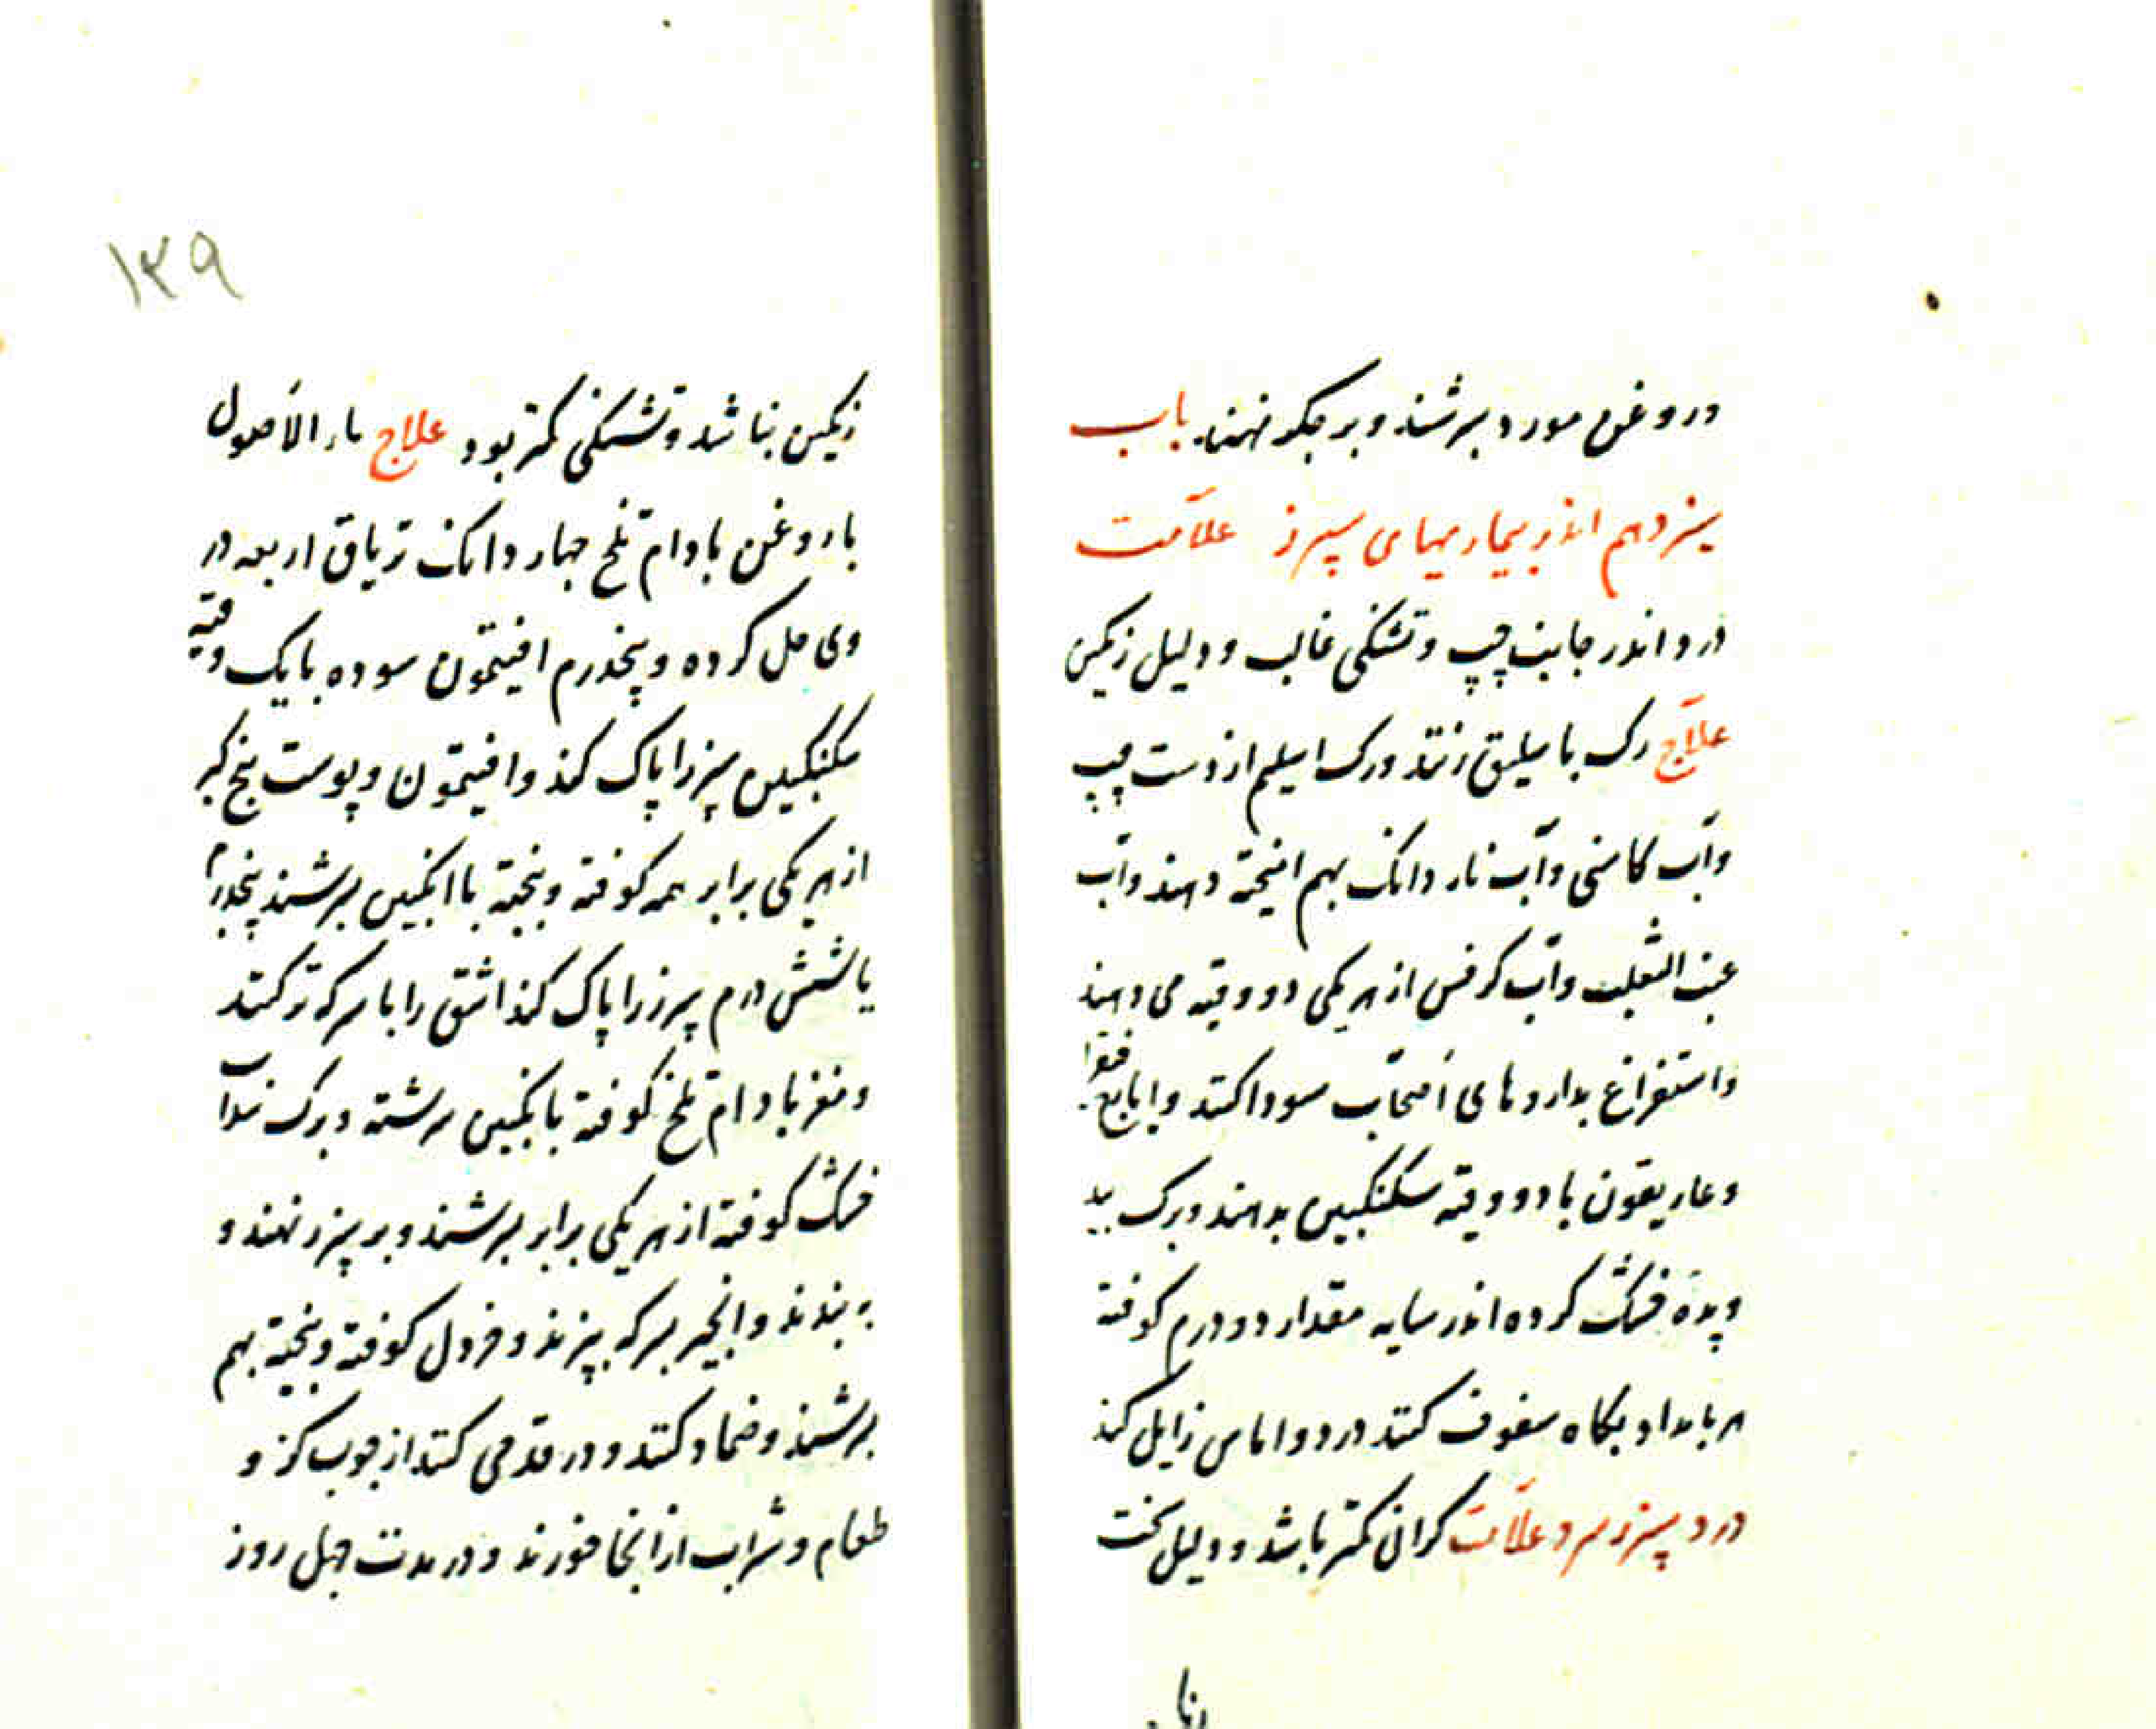 در و غن مورد بسرشند و بر جکر نهند باب
سیزدهم اندر بیماریهای سپرز علامت
درد اندر جانب چپ و تشنکی غالب و دلیل رنکین
علاج رک باسلیق زنند ورک اسیلم از دست چپ
وآب کاسنی وآب نار دانک بهم امیخته دهند وآب
عنب الثعلب وآب کرفس از هر یکی دو وقیه می دهند
واستفراغ بداروهای اصحاب سودا کنند وایارج فیقرا
وغاریقون با دو وقیه سکنکبین بدهند وبرک بید
وپده خشک کرده اندر سایه مقدار دو درم کوفته
هر بامداد پکاه سفوف کنند درد واماس زایل کند
درد سپرز سرد علامت کرانی کمتر باشد و دلیل سخت
رنکین نباشد وتشنکی کمتر بود علاج ماء الاصول
با روغن بادام تلخ چهار دانک تریاق اربعه در
وی حل کرده وپنجدرم افیتمون سوده با یک وقیه
سکنکبین سپرز را پاک کند وافیتمون وپوست بیخ کبر
از هر یکی برابر همه کوفته وبیخته با انکبین بسرشند پنجدرم
یا شش درم سپرز را پاک کند اشق را با سرکه تر کنند
ومغز بادام تلخ کوفته بانکبین سرشته وبرک سداب
خشک کوفته از هر یکی برابر بسرشند وبر سپرز نهند و
به بندند وانجیر بسرکه بپزند وخردل کوفته وبیخته بهم
بسرشند وضماد کنند ودر قدحی کنند از چوب کز و
طعام وشراب از انجا خورند ودر مدت چهل روز
۱۲۹